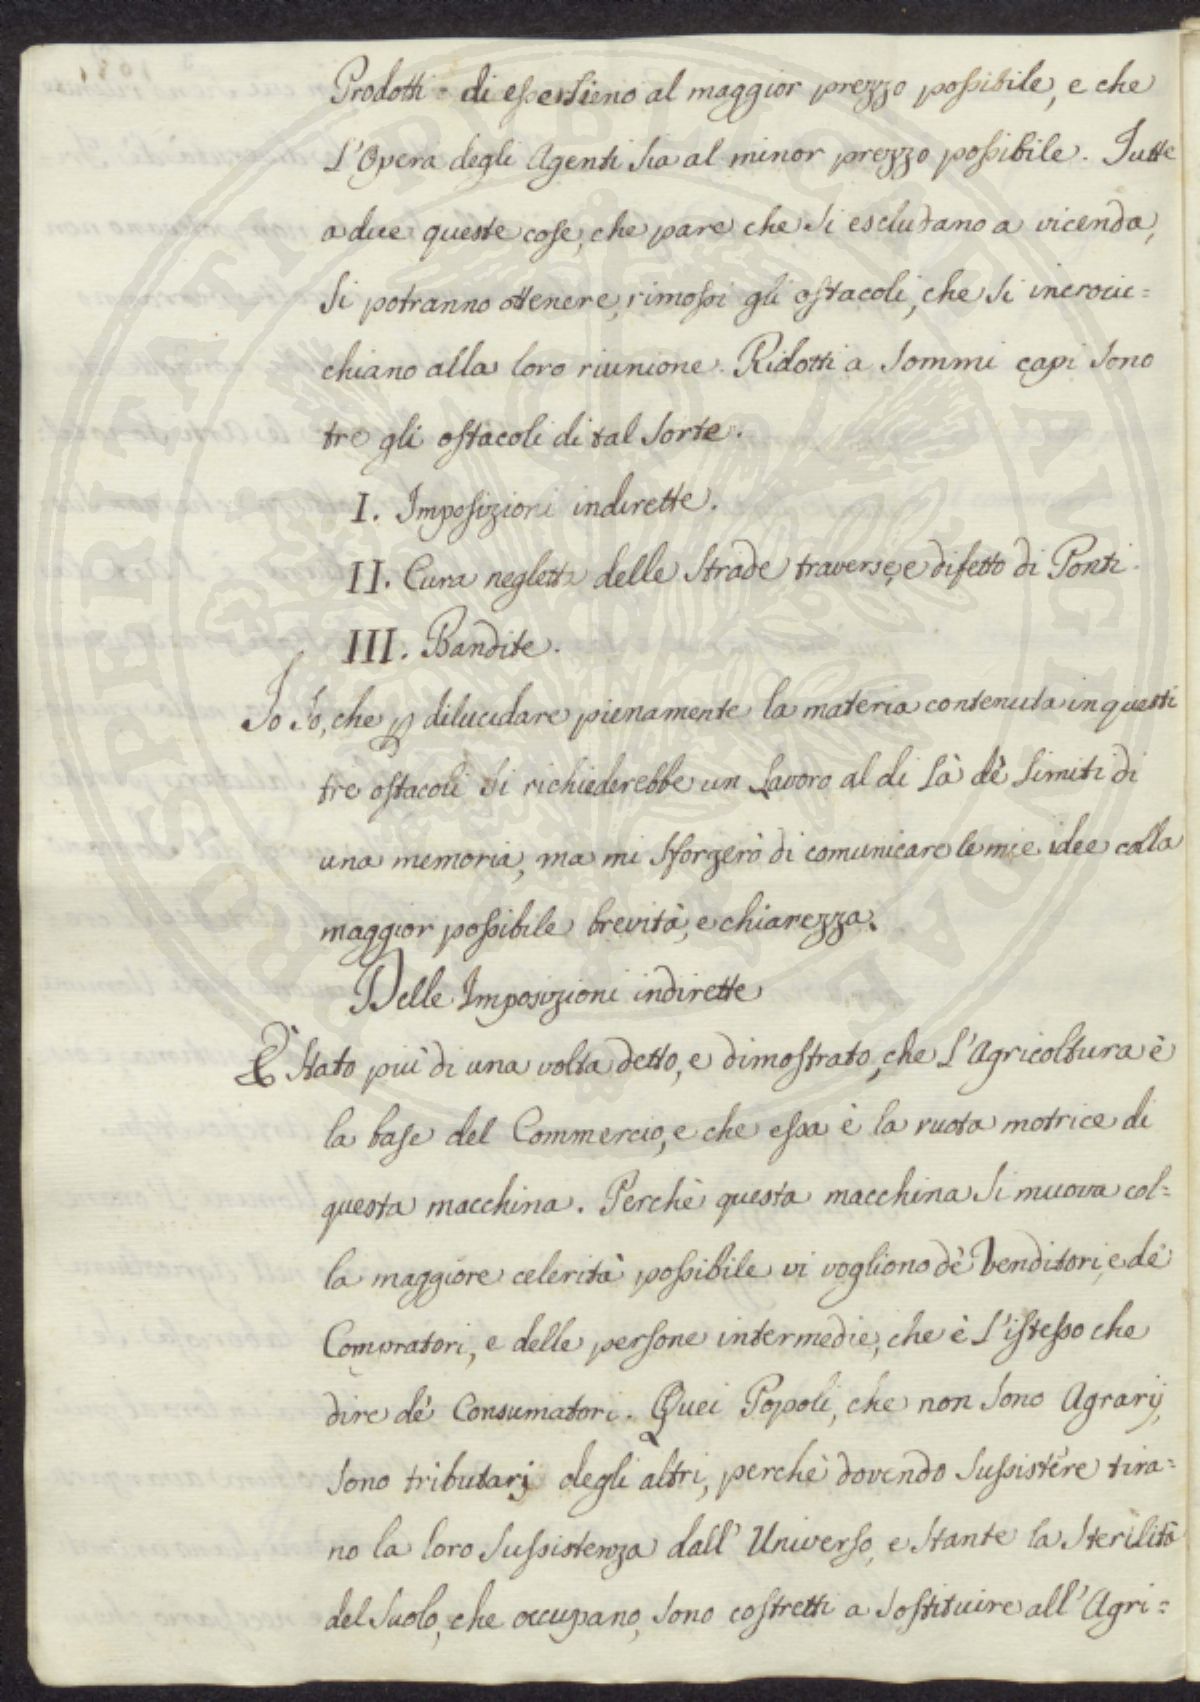 Prodotti di essa sieno al maggior prezzo possibile, e che
L'Opera degli Agenti sia al minor prezzo possibile. Tutte
a due queste cose, che pare che si escludano a vicenda,
si potranno ottenere, rimossi gli ostacoli, che si incroic=
chiano alla loro riunione. Ridotti a sommi capi sono
tre gli ostacoli di tal sorte.
I. Imposizioni indirette.
II. Cura negletta delle Strade traverse, e difetto di Ponti.
III. Bandite.
Io so, che p dilucidare pienamente la materia contenuta in questi
tre ostacoli si richiederebbe un Lavoro al di là dè Limiti di
una memoria, ma mi sforzerò di comunicare le mie idee colla
maggior possibile brevità, e chiarezza.
Delle Imposizioni indirette
È stato più di una volta detto, e dimostrato, che L'Agricoltura è
la base del Commercio, e che essa è la ruota motrice di
questa macchina. Perchè questa macchina si muova col=
la maggiore celerità possibile vi vogliono dè Venditori, e dè
Compratori, e delle persone intermedie, che è L'istesso che
dire dè Consumatori. Quei Popoli, che non sono Agrarij,
sono tributarj degli altri, perchè dovendo sussistere tira=
no la loro sussistenza dall' Universo, e stante la sterilità
del suolo, che occupano, sono costretti a sostituire all' Agri=
PROSPERITATI PUBLICAE AUGENDAE